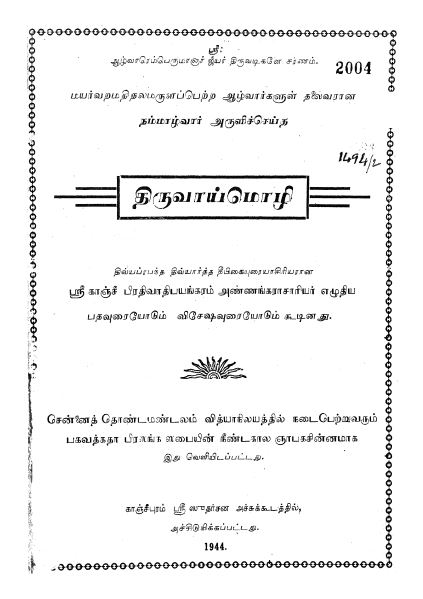 ஸ்ரீ:
ஆழ்வாரெம்பெருமானார் ஜீயர் திருவடிகளே சரணம்.
2004
மயர்வறமதிநலமருளப்பெற்ற ஆழ்வார்களுள் தலைவரான
நம்மாழ்வார் அருளிச்செய்த
1494/2
திருவாய்மொழி
திவ்யப்ரபந்த திவ்யார்த்த தீபிகையுரையாசிரியரான
ஸ்ரீ காஞ்சீ பிரதிவாதிபயங்கரம் அண்ணங்கராசாரியர் எழுதிய
பதவுரையோடும் விசேஷவுரையோடும் கூடினது.
சென்னைத் தொண்டமண்டலம் வித்யாலயத்தில் நடைபெற்றுவரும்
பகவத்கதா பிரஸங்க ஸபையின் நீண்டகால ஞாபகசின்னமாக
இது வெளியிடப்பட்டது.
காஞ்சீபுரம் ஸ்ரீ ஸுதர்சன அச்சுக்கூடத்தில்,
அச்சிடுவிக்கப்பட்டது.
1944.